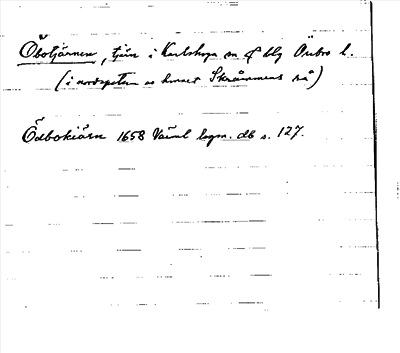 Öbotjärnen, tjärn i Karlskoga sn o blg Örebro l.
(i nordspetsen av hemmet Skråmmens rå)
Ödbokiärn 1658 Värml lagm. db s. 127.